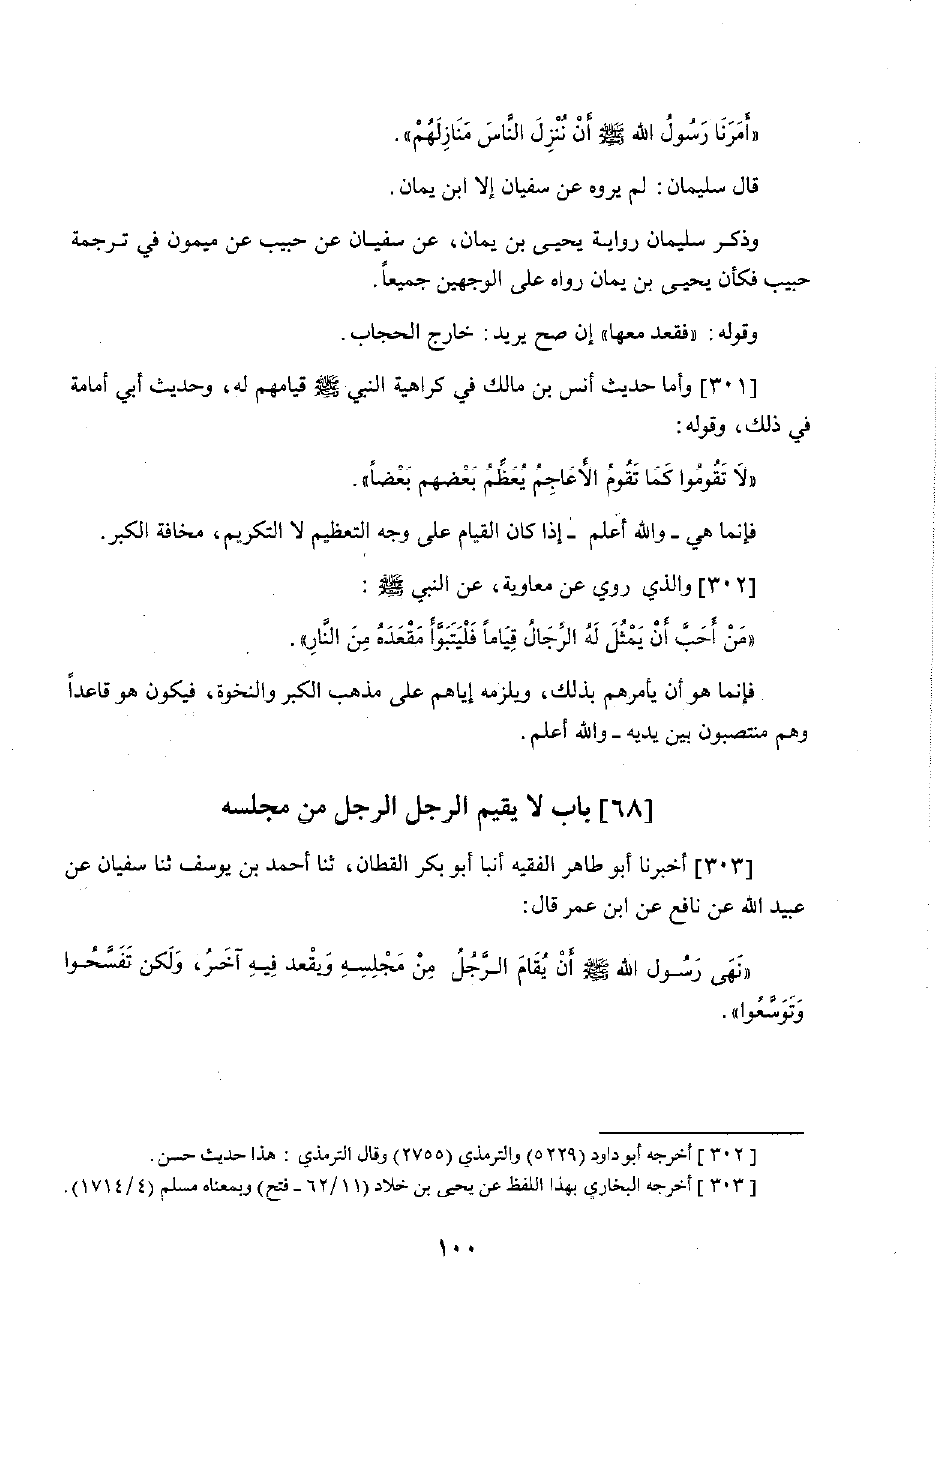 «أَمَرَنَا رَسُولُ الله ﷺ أَنْ نُنْزِلَ النَّاسَ مَنَازِلَهُمْ».
قال سليمان: لم يروه عن سفيان إلا ابن يمان.
وذكر سليمان رواية يحيى بن يمان، عن سفيان عن حبيب عن ميمون في ترجمة
حبيب فكأن يحيى بن يمان رواه على الوجهين جميعاً.
وقوله: «فقعد معها» إن صح يريد: خارج الحجاب.
[٣٠١] وأما حديث أنس بن مالك في كراهية النبي ﷺ قيامهم له، وحديث أبي أمامة
في ذلك، وقوله:
«لَا تَقُومُوا كَمَا تَقُومُ الأَعَاجِمُ يُعَظِّمُ بَعْضهم بَعْضاً».
فإنما هي ـ والله أعلم ـ إذا كان القيام على وجه التعظيم لا التكريم، مخافة الكبر.
[٣٠٢] والذي روي عن معاوية، عن النبي ﷺ :
«مَنْ أَحَبَّ أَنْ يَمْثُلَ لَهُ الرِّجَالُ قِيَاماً فَلْيَتَبَوَّأْ مَقْعَدَهُ مِنَ النَّارِ».
فإنما هو أن يأمرهم بذلك، ويلزمه إياهم على مذهب الكبر والنخوة، فيكون هو قاعداً
وهم منتصبون بين يديه ـ والله أعلم.
[٦٨] باب لا يقيم الرجل الرجل من مجلسه
[٣٠٣] أخبرنا أبو طاهر الفقيه أنبا أبو بكر القطان، ثنا أحمد بن يوسف ثنا سفيان عن
عبيد الله عن نافع عن ابن عمر قال:
«نَهَى رَسُول الله ﷺ أَنْ يُقَامَ الرَّجُلُ مِنْ مَجْلِسِهِ وَيَقْعد فِيهِ آخَرُ، وَلَكن تَفَسَّحُوا
وَتَوَسَّعُوا».
[٣٠٢] أخرجه أبو داود (٥٢٢٩) والترمذي (٢٧٥٥) وقال الترمذي : هذا حديث حسن.
[٣٠٣] أخرجه البخاري بهذا اللفظ عن يحيى بن خلاد (٦٢/١١ ـ فتح) وبمعناه مسلم (١٧١٤/٤).
١٠٠